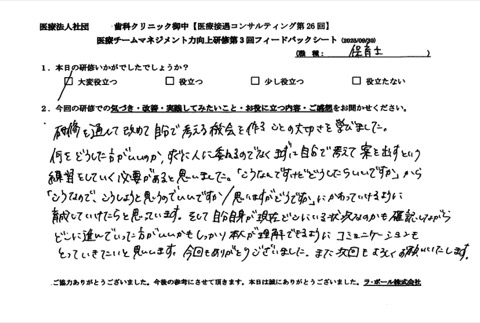 医療法人社団　　歯科クリニック御中【医療接遇コンサルティング第26回】
医療チームマネジメント力向上研修第3回フィードバックシート（2025/09/30）
（職種：保育士）
1．本日の研修いかがでしたでしょうか？
□ 大変役立つ　□ 役立つ　□ 少し役立つ　□ 役立たない
2．今回の研修での気づき・改善・実践してみたいこと・お役に立つ内容・ご感想をお聞かせください。
研修を通して改めて自分で考える機会を作ることの大切さを学びました。
何をどうした方がいいのか、すぐに人に委ねるのでなくまずは自分で考えて案を出すという
練習をしていく必要があると思いました。「こうなんですけどどうしたらいいですか」から
「こうなので、こうしようと思うのでいいですか/思いますがどうですか」にかわっていけるように
育成していけたらと思っています。そして自分自身が現在どこにいる状況なのかも確認しながら
どこに進んでいった方がいいかもしっかり本人が理解できるように コミュニケーションも
とっていきたいと思います。今回もありがとうございました。また次回もよろしくお願いいたします。
ご協力ありがとうございました。今後の参考にさせて頂きます。本日は誠にありがとうございました。ラ・ポール株式会社